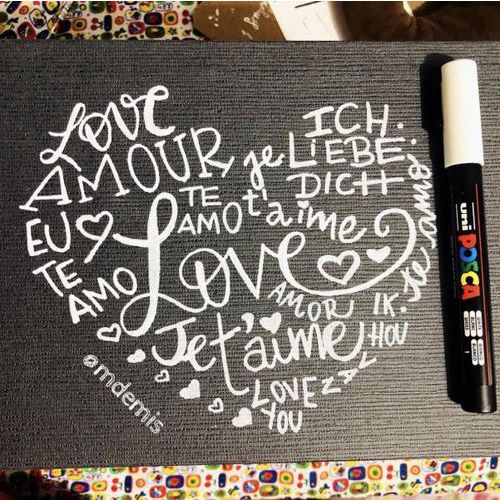 Love
AMOUR
EU
TE
AMO
TE
AMO
je
t'aime
ICH.
LIEBE.
DICH
te amo
Love
AMOR
IK.
HOU
Je t'aime
LOVE
YOU
@mdemis
uni
POSCA